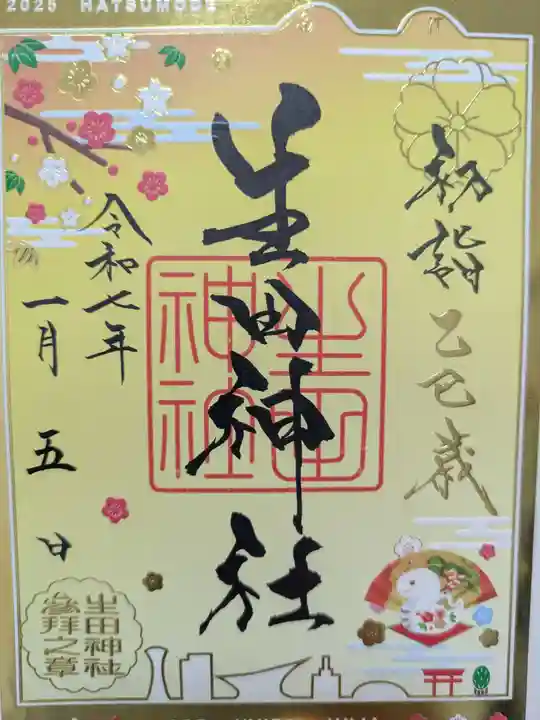 2025 HATSUMODE
初詣
乙巳歳
生田神社
生田神社
令和七年
一月五日
生田神社
参拝之章